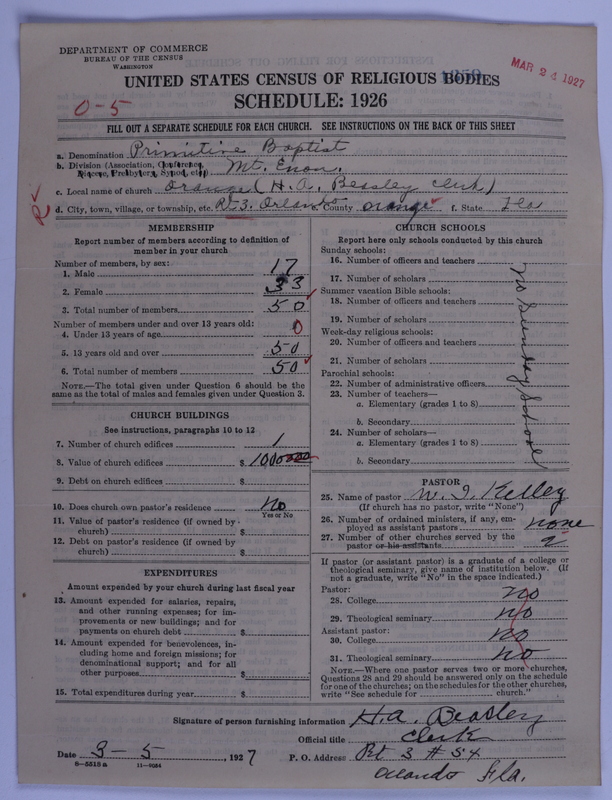 DEPARTMENT OF COMMERCE
BUREAU OF THE CENSUS
WASHINGTON
MAR 24 1927
UNITED STATES CENSUS OF RELIGIOUS BODIES
SCHEDULE: 1926
0-5
FILL OUT A SEPARATE SCHEDULE FOR EACH CHURCH. SEE INSTRUCTIONS ON THE BACK OF THIS SHEET
a. Denomination Primitive Baptist
b. Division (Association, Conference, Diocese, Presbytery, Synod, etc.) Mt. Enon.
c. Local name of church Orange (H. A. Beasley Clerk)
d. City, town, village, or township, etc. Rt 3. Orlando e. County Orange f. State Fla
MEMBERSHIP
Report number of members according to definition of
member in your church
Number of members, by sex:
1. Male 17
2. Female 33
3. Total number of members 50
Number of members under and over 13 years old:
4. Under 13 years of age 0
5. 13 years old and over 50
6. Total number of members 50
NOTE.—The total given under Question 6 should be the
same as the total of males and females given under Question 3.
CHURCH BUILDINGS
See instructions, paragraphs 10 to 12
7. Number of church edifices 1
8. Value of church edifices $ 1000
9. Debt on church edifices $
10. Does church own pastor's residence No
Yes or No
11. Value of pastor's residence (if owned by
church) $
12. Debt on pastor's residence (if owned by
church) $
EXPENDITURES
Amount expended by your church during last fiscal year
13. Amount expended for salaries, repairs,
and other running expenses; for im-
provements or new buildings; and for
payments on church debt $
14. Amount expended for benevolences, in-
cluding home and foreign missions; for
denominational support; and for all
other purposes $
15. Total expenditures during year $
CHURCH SCHOOLS
Report here only schools conducted by this church
Sunday schools:
16. Number of officers and teachers
17. Number of scholars
Summer vacation Bible schools:
18. Number of officers and teachers
19. Number of scholars
Week-day religious schools:
20. Number of officers and teachers
21. Number of scholars
Parochial schools:
22. Number of administrative officers
23. Number of teachers—
a. Elementary (grades 1 to 8)
b. Secondary
24. Number of scholars—
a. Elementary (grades 1 to 8)
b. Secondary
No Sunday School
PASTOR
25. Name of pastor W. I. Kelley
(If church has no pastor, write "None")
26. Number of ordained ministers, if any, em-
ployed as assistant pastors none
27. Number of other churches served by the
pastor or his assistants 2
If pastor (or assistant pastor) is a graduate of a college or
theological seminary, give name of institution below. (If
not a graduate, write "No" in the space indicated.)
Pastor:
28. College no
29. Theological seminary no
Assistant pastor:
30. College no
31. Theological seminary no
NOTE.—Where one pastor serves two or more churches,
Questions 28 and 29 should be answered only on the schedule
for one of the churches; on the schedules for the other churches,
write "See schedule for church."
Signature of person furnishing information H. A. Beasley
Official title Clerk
Date 3-5, 1927 P. O. Address Rt 3 # 54
Orlando Fla.
8-5518 a 11-9034